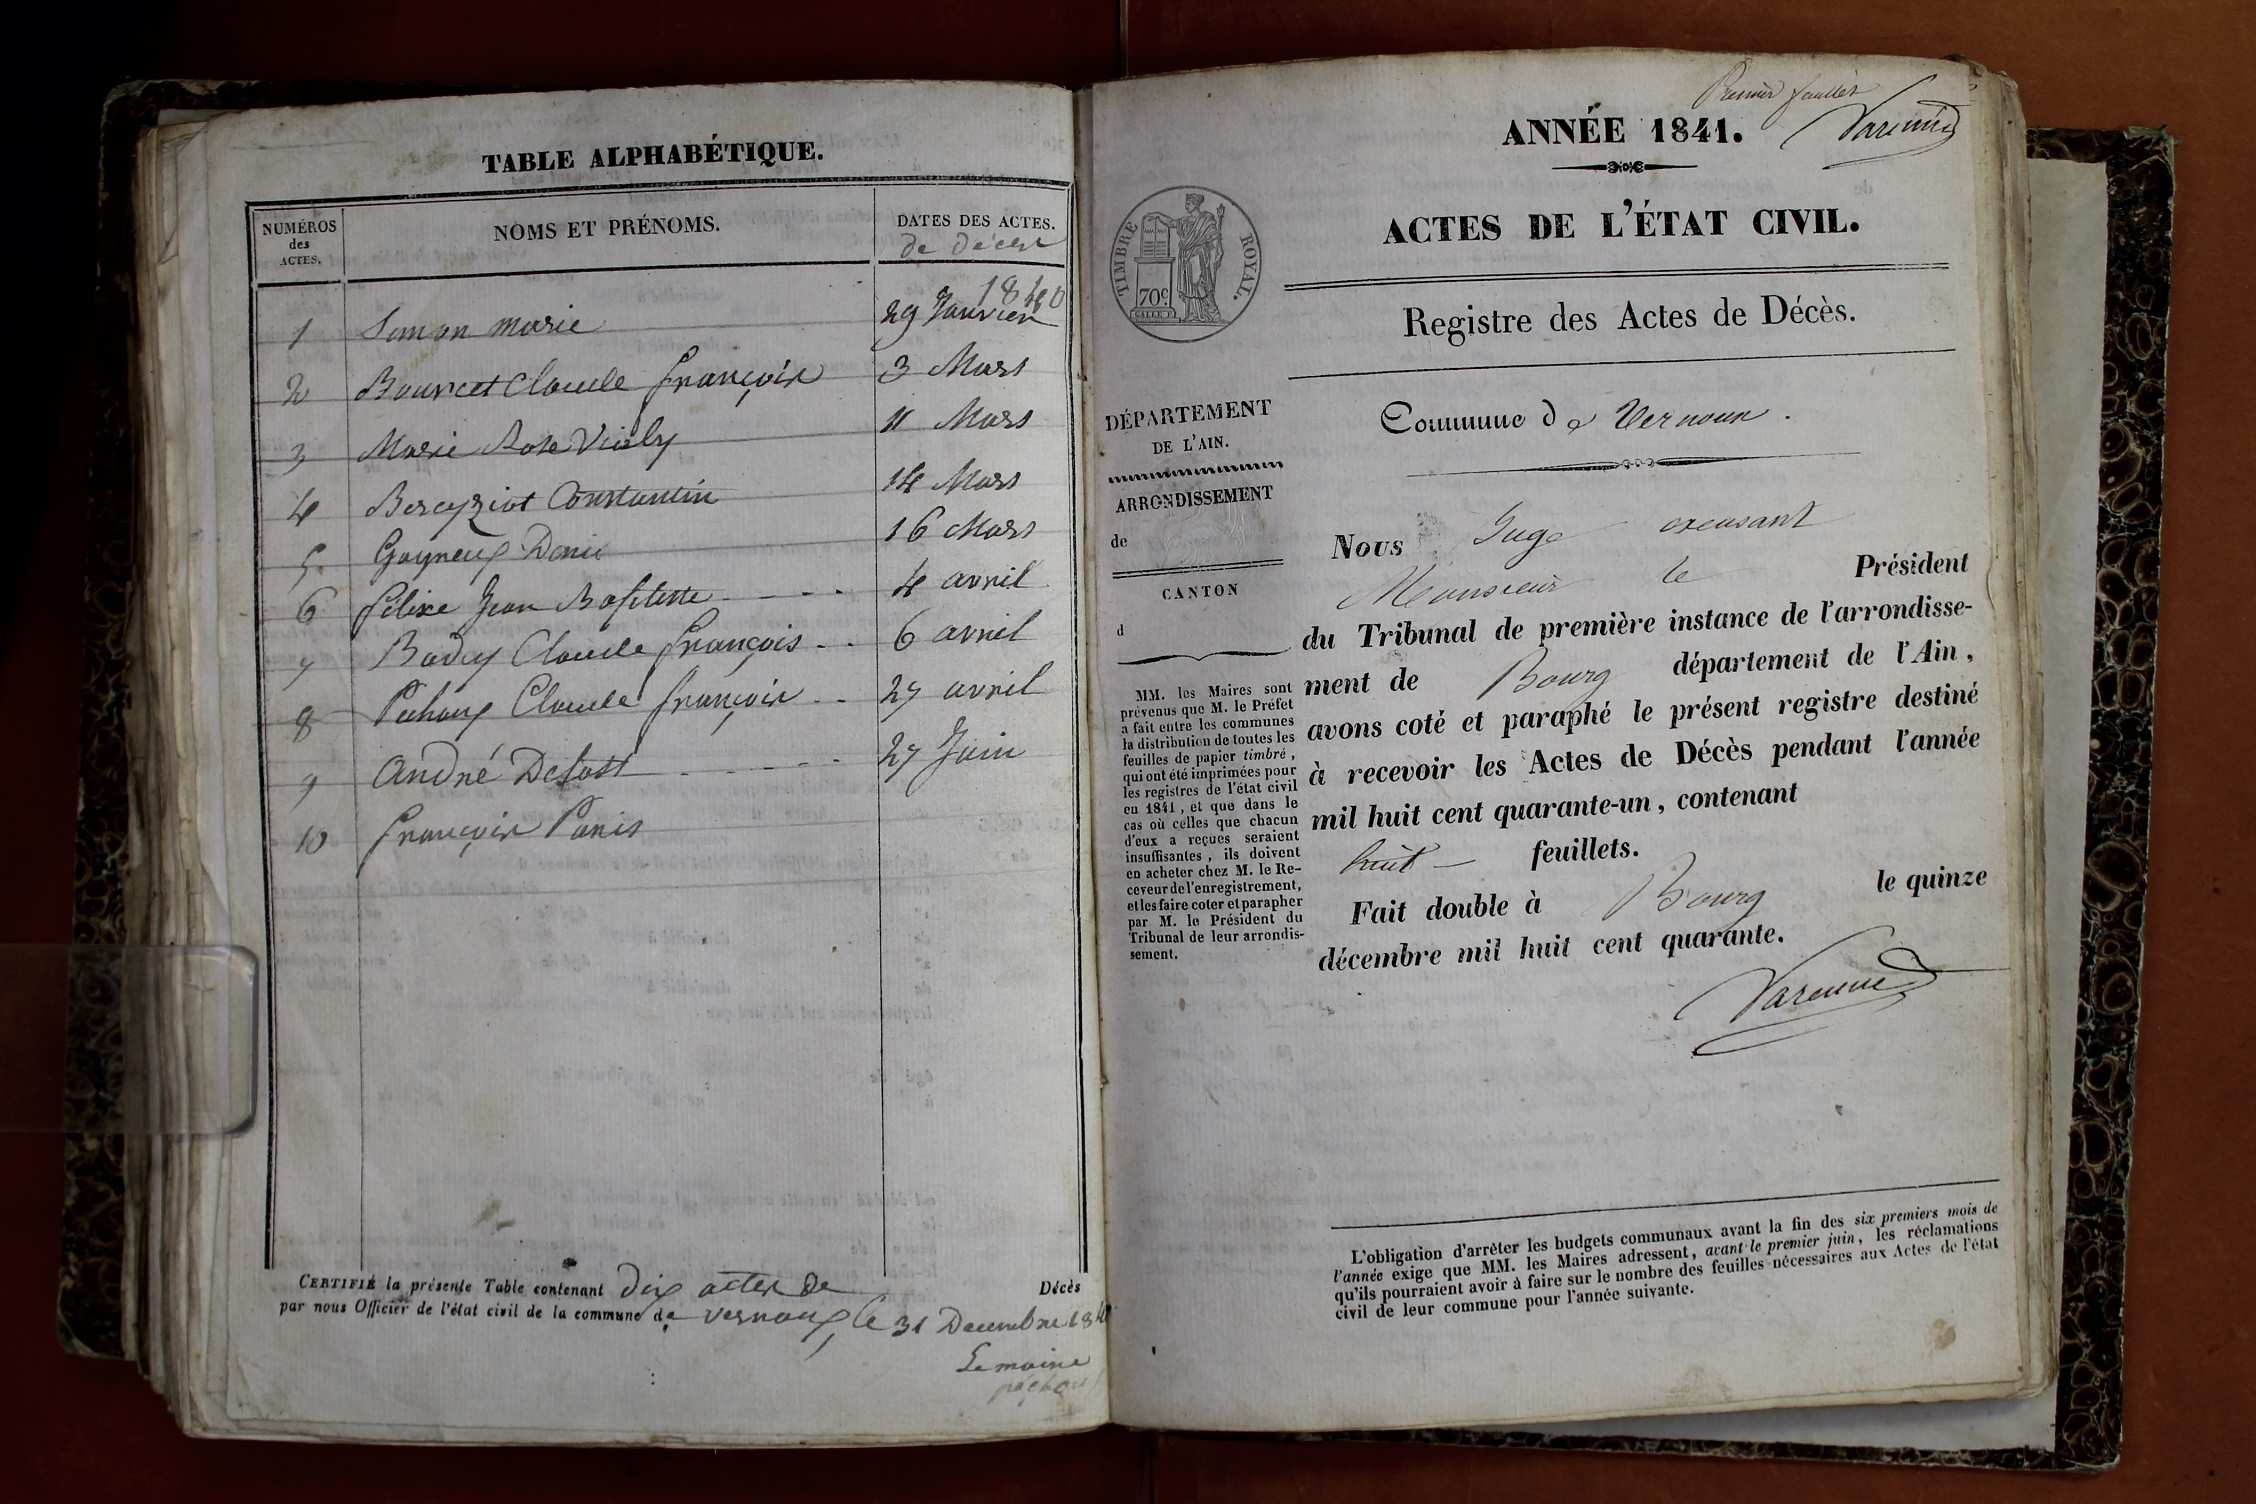 TABLE ALPHABÉTIQUE.
NUMÉROS
des
ACTES.
NOMS ET PRÉNOMS.
DATES DES ACTES.
de décès
1840
1 Simon marie 29 Janvier
2 Bourcet Claude françois 3 Mars
3 Marie Rose Viely 11 Mars
4 Bereyziat Constantin 14 Mars
5 Goyneux Denis 16 Mars
6 félix Jean Baptiste 4 avril
7 Badey Claude françois 6 avril
8 Pachoux Claude françois 27 avril
9 André Defost 27 Juin
10 françois Panis
CERTIFIÉ la présente Table contenant dix actes de Décès
par nous Officier de l'état civil de la commune de vernoux, le 31 Decembre 1840
Le maire
Premier feuillet
ANNÉE 1841.
Varenne
ACTES DE L'ÉTAT CIVIL.
TIMBRE ROYAL.
70c
Registre des Actes de Décès.
DÉPARTEMENT
DE L'AIN.
ARRONDISSEMENT
de
CANTON
d
MM. les Maires sont
prévenus que M. le Préfet
a fait entre les communes
la distribution de toutes les
feuilles de papier timbré,
qui ont été imprimées pour
les registres de l'état civil
en 1841, et que dans le
cas où celles que chacun
d'eux a reçues seraient
insuffisantes, ils doivent
en acheter chez M. le Re-
ceveur de l'enregistrement,
et les faire coter et parapher
par M. le Président du
Tribunal de leur arrondis-
sement.
Commune de Vernoux.
Nous Juge excusant
Monsieur le Président
du Tribunal de première instance de l'arrondisse-
ment de Bourg département de l'Ain,
avons coté et paraphé le présent registre destiné
à recevoir les Actes de Décès pendant l'année
mil huit cent quarante-un, contenant
huit feuillets.
Fait double à Bourg le quinze
décembre mil huit cent quarante.
Varenne
L'obligation d'arrêter les budgets communaux avant la fin des six premiers mois de
l'année exige que MM. les Maires adressent, avant le premier juin, les réclamations
qu'ils pourraient avoir à faire sur le nombre des feuilles nécessaires aux Actes de l'état
civil de leur commune pour l'année suivante.